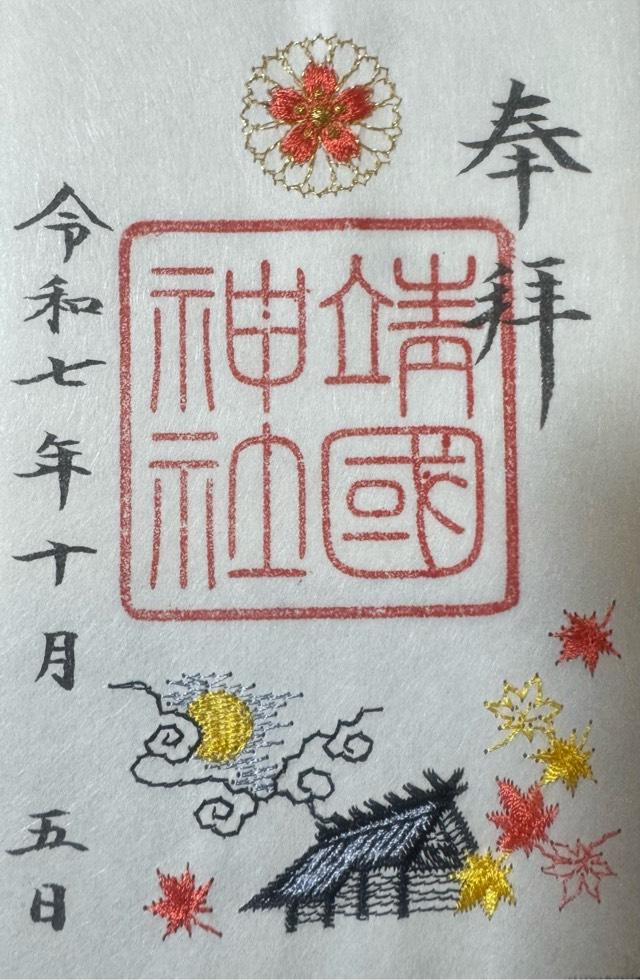 奉拝
靖國
神社
令和七年十月五日